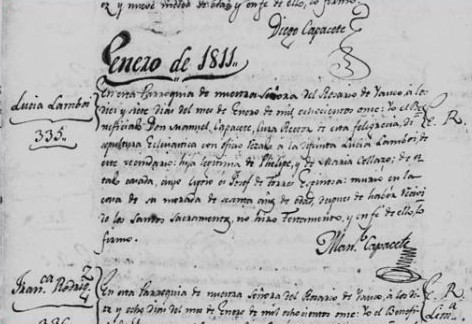 y nueve
y en fe de ello, lo firmo
Diego Capacete
Enero de 1811.
Lucia Lamboi
335..
En esta Parroquia de nuestra Señora del Rosario de Yauco a los
diez y siete dias del mes de Enero de mil ochocientos once: Yo el Be-
neficiado Don Manuel Capacete, Cura Rector de esta feligrecia, di
sepultura Ecleciastica con oficio rezado a la difunta Lucia Lamboi, de
este vecindario: hija legitima de Phelipe, y de Maria Collazo; de
casada, cuyo es Josef de Torres Espinosa: murio en la
casa de su morada de años de edad, despues de haber recivi-
do los Santos Sacramentos, no hizo Testamento, y en fe de ello, lo
firmo.
E. R.
Man. Capacete
Fran.ca Rodrig.
En esta Parroquia de nuestra Señora del Rosario de Yauco, a los di-
ez y ocho dias del mes de Enero de mil ochocientos once: Yo el Benefi-
E. R.
336